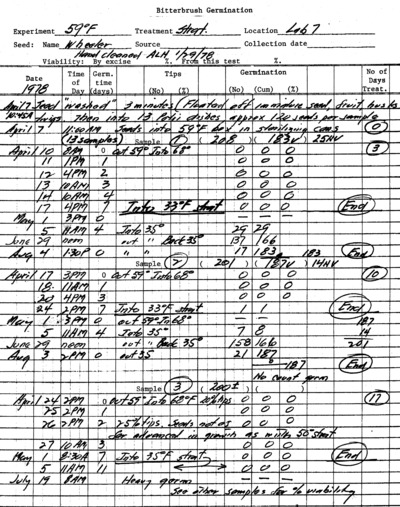 Bitterbrush Germination
Experiment 59°F Treatment Strat. Location Lab 7
Seed: Name Wheeler Source Collection date
Hand cleaned ALH 1/29/78
Viability: By excise %. From this test %.
Date Time of Day Germ. time (days) Tips (No) (%) Germination (No) (Cum) (%) No of Days Treat.
1978
April 7 Seed "washed" 3 minutes (Floated off immature seed, fruit husks
10:45A then into 13 Petri dishes approx 120 seeds per sample
April 7 11:00AM Seeds into 59°F box in sterilizing cans 0
(13 samples) Sample 1 ( 208 ) ( 183V ) 25NV
April 10 8AM 0 out 59° Into 68° 0 0 0 3
11 1PM 1 0 0 0
12 4PM 2 0 0 0
13 10AM 3 0 0 0
14 10AM 4 0 0 0
17 4PM 7 Into 33°F strat 0 0 0 End
May 1 3PM 0 — — —
5 11AM 4 Into 35° 29 29
June 29 noon out " Back 35° 137 166
Aug 4 1:30P 0 " " 17 183 183 End
Sample 2 ( 201 ) ( 187V ) 14NV
April 17 3PM 0 out 59° Into 68° 0 0 0 10
18 11AM 1 0 0 0
20 4PM 3 0 0 0
24 2PM 7 Into 33°F strat 1 1 End
May 1 3PM 0 out 59° To 68° — — 187
5 11AM 4 Into 35° 7 8 14
June 29 noon out " Back 35° 158 166 201
Aug 3 2PM 0 out 35 21 187
187 End
No count germ
Sample 3 ( 200± ) (
April 24 2PM 0 out 59° Into 68°F 20% tips 0 0 0 17
25 2PM 1 0 0 0
26 2PM 2 25% tips. Seeds not as 0 0 0
far advanced in growth as with 50° strat
27 10AM 3 0 0 0
May 1 8:30A 7 Into 35°F strat 0 0 0 End
5 11AM 11 0 0 0
July 19 8AM Heavy germ
See other samples for % viability